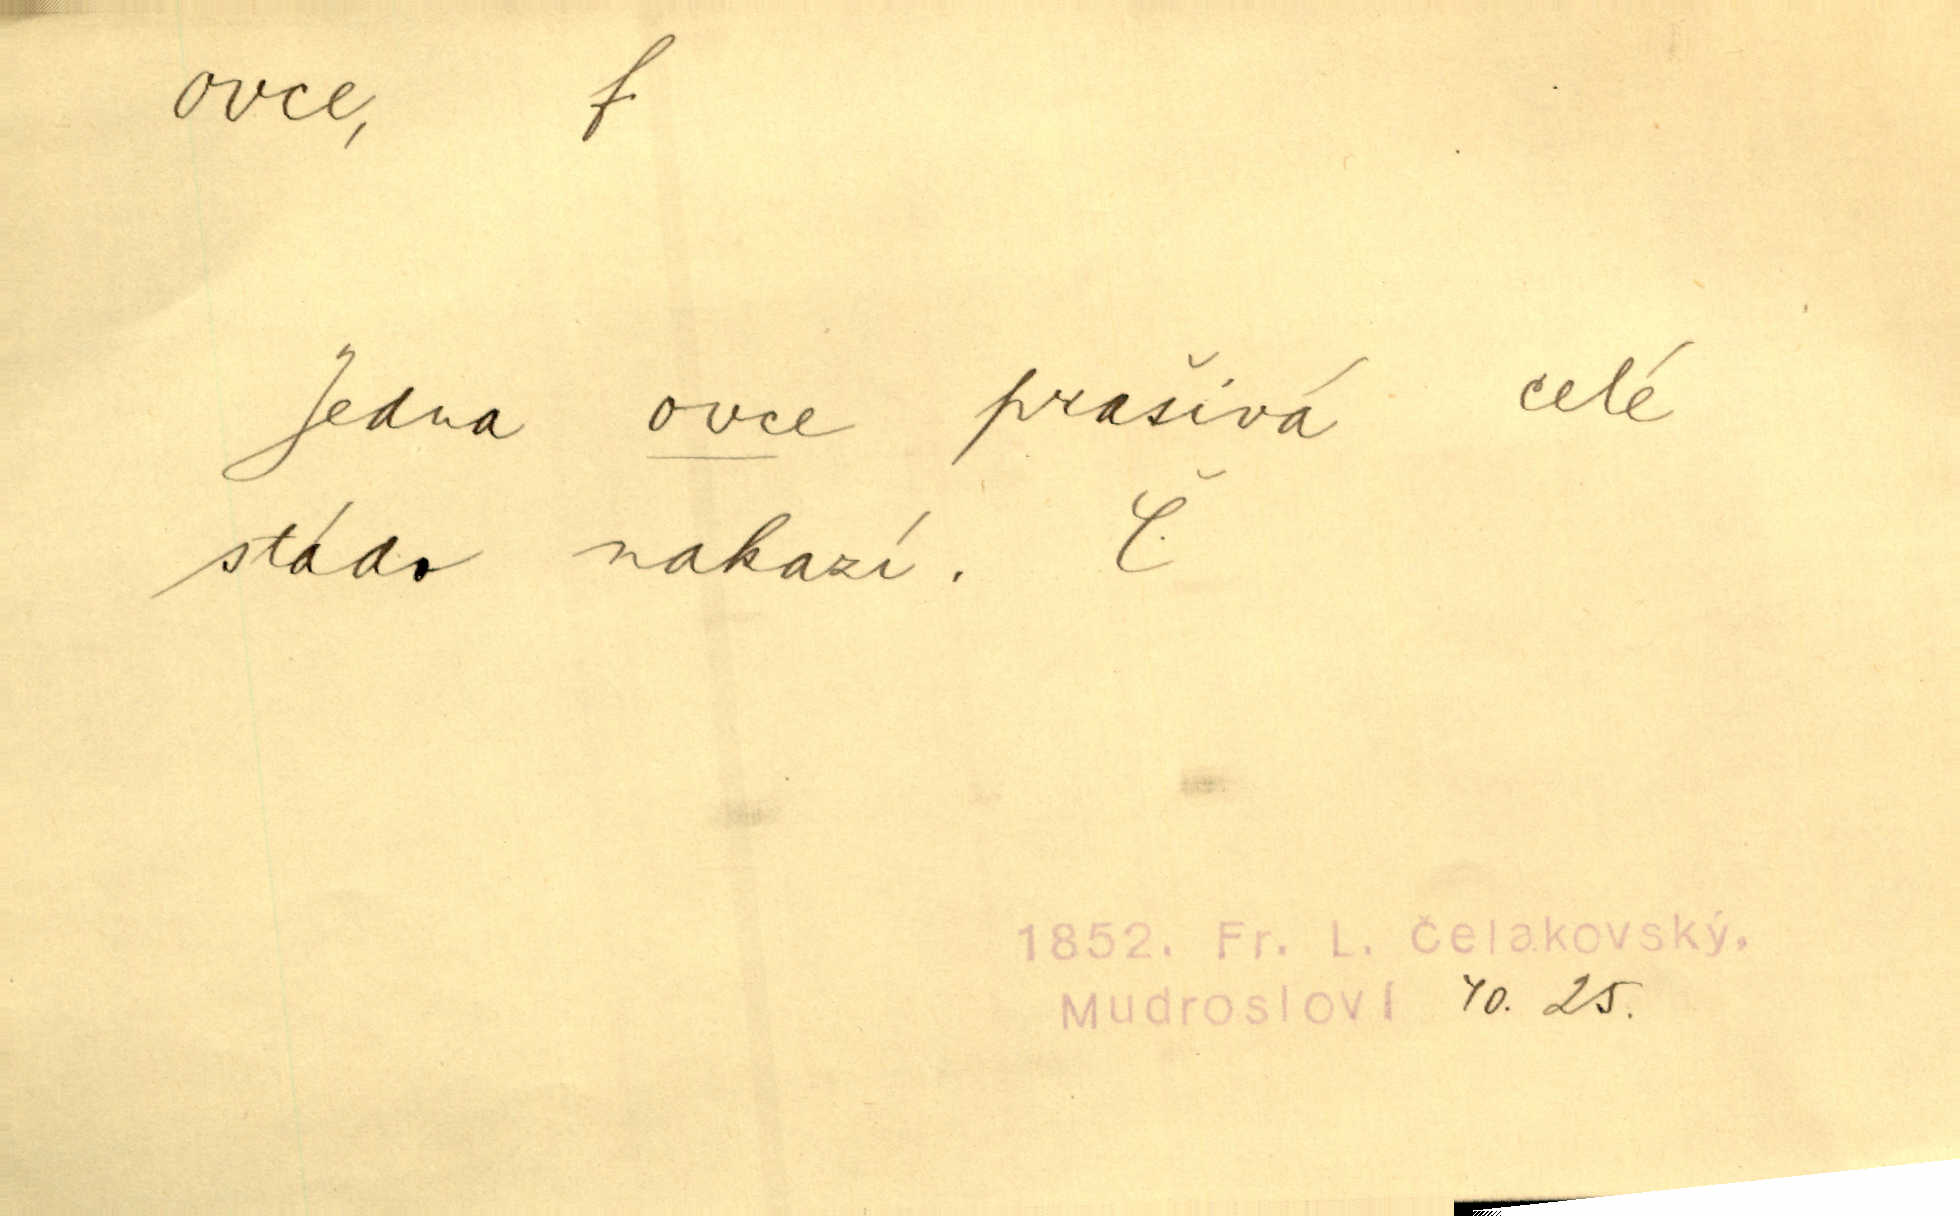 ovce, f
Jedna ovce prašivá celé
stádo nakazí. Č.
1852. Fr. L. Čelakovský.
Mudrosloví 40. 25.